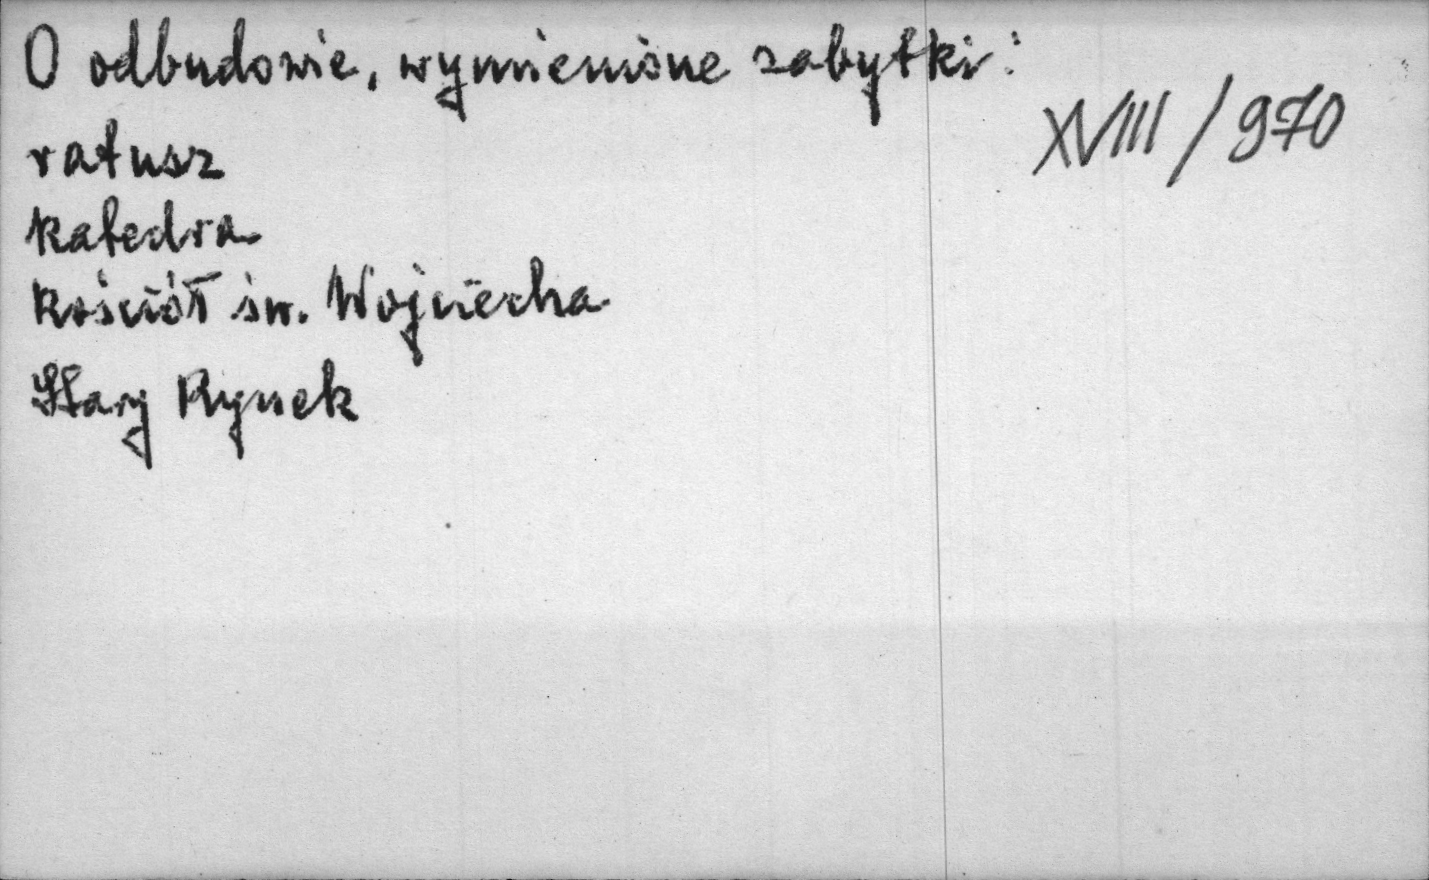 O odbudowie, wymienione zabytki:
XVIII / 970
ratusz
katedra
kościół św. Wojciecha
Stary Rynek